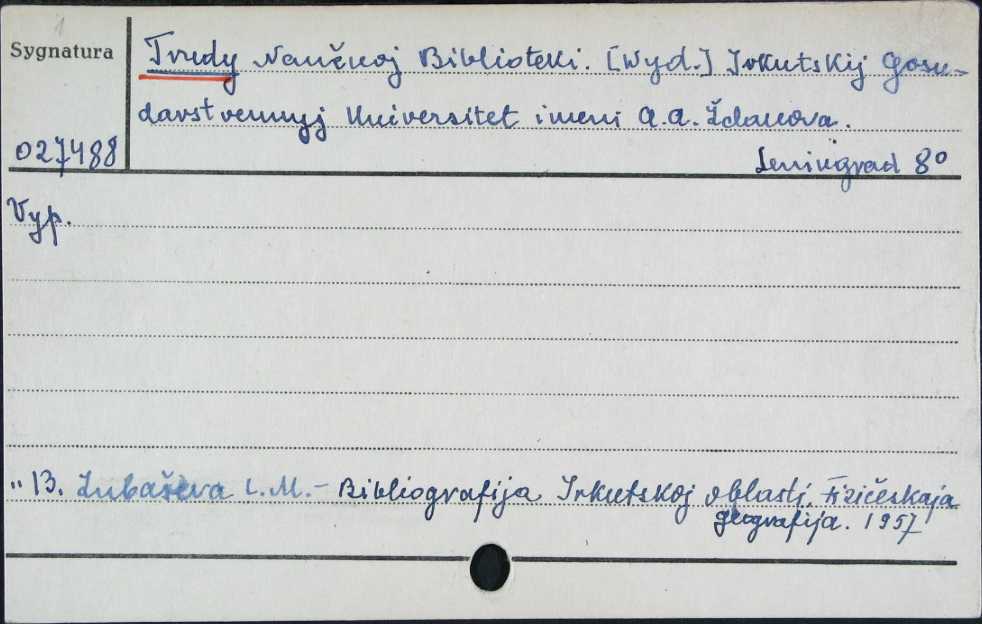 Sygnatura
Trudy Naučnoj Biblioteki. [Wyd.] Irkutskij Gosu-
darstvennyj Universitet imeni A.A. Ždanova.
027488
Leningrad 8°
Vyp.
" 13. Lubaševa L.M. - Bibliografija Irkutskoj oblasti. Fizičeskaja
geografija. 1957